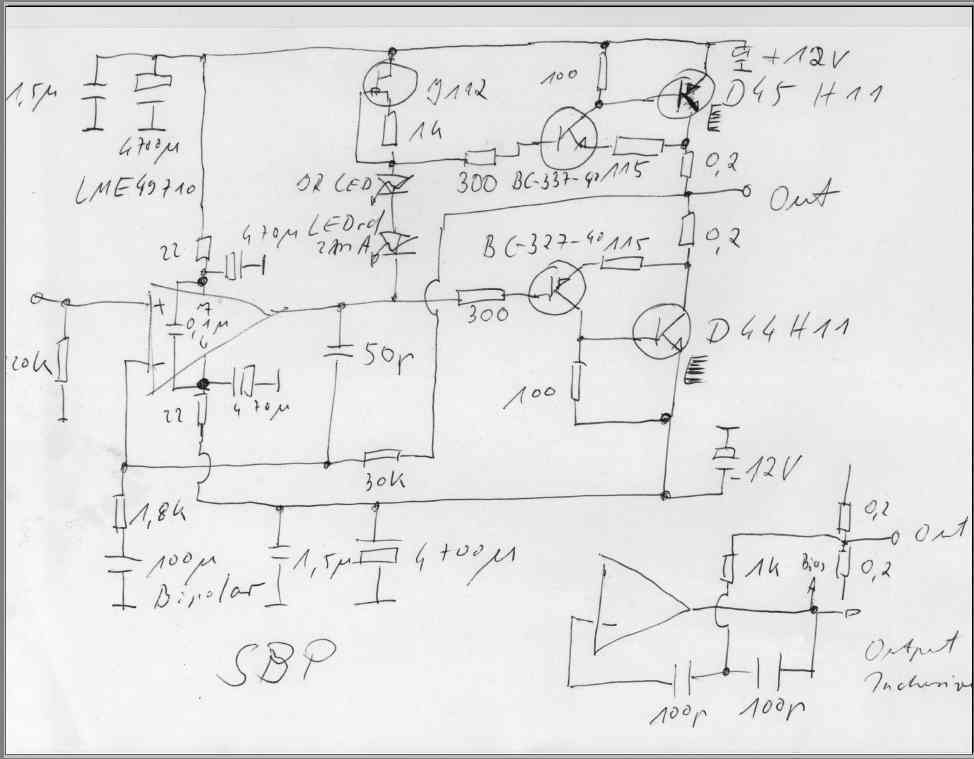 +12V
1,5µ
4700µ
LME49710
J112
1k
100
D45 H11
300
BC-337-40
115
0,2
Out
2x LED
LED rd
2mA
22
470µ
BC-327-40
115
0,2
+
7
0,1µ
4
-
20k
22
470µ
50p
300
D44H11
100
30k
-12V
1,8k
100µ
Bipolar
1,5µ
4700µ
SBP
0,2
Out
1k
Bias
0,2
-
100p
100p
Output
Inclusive